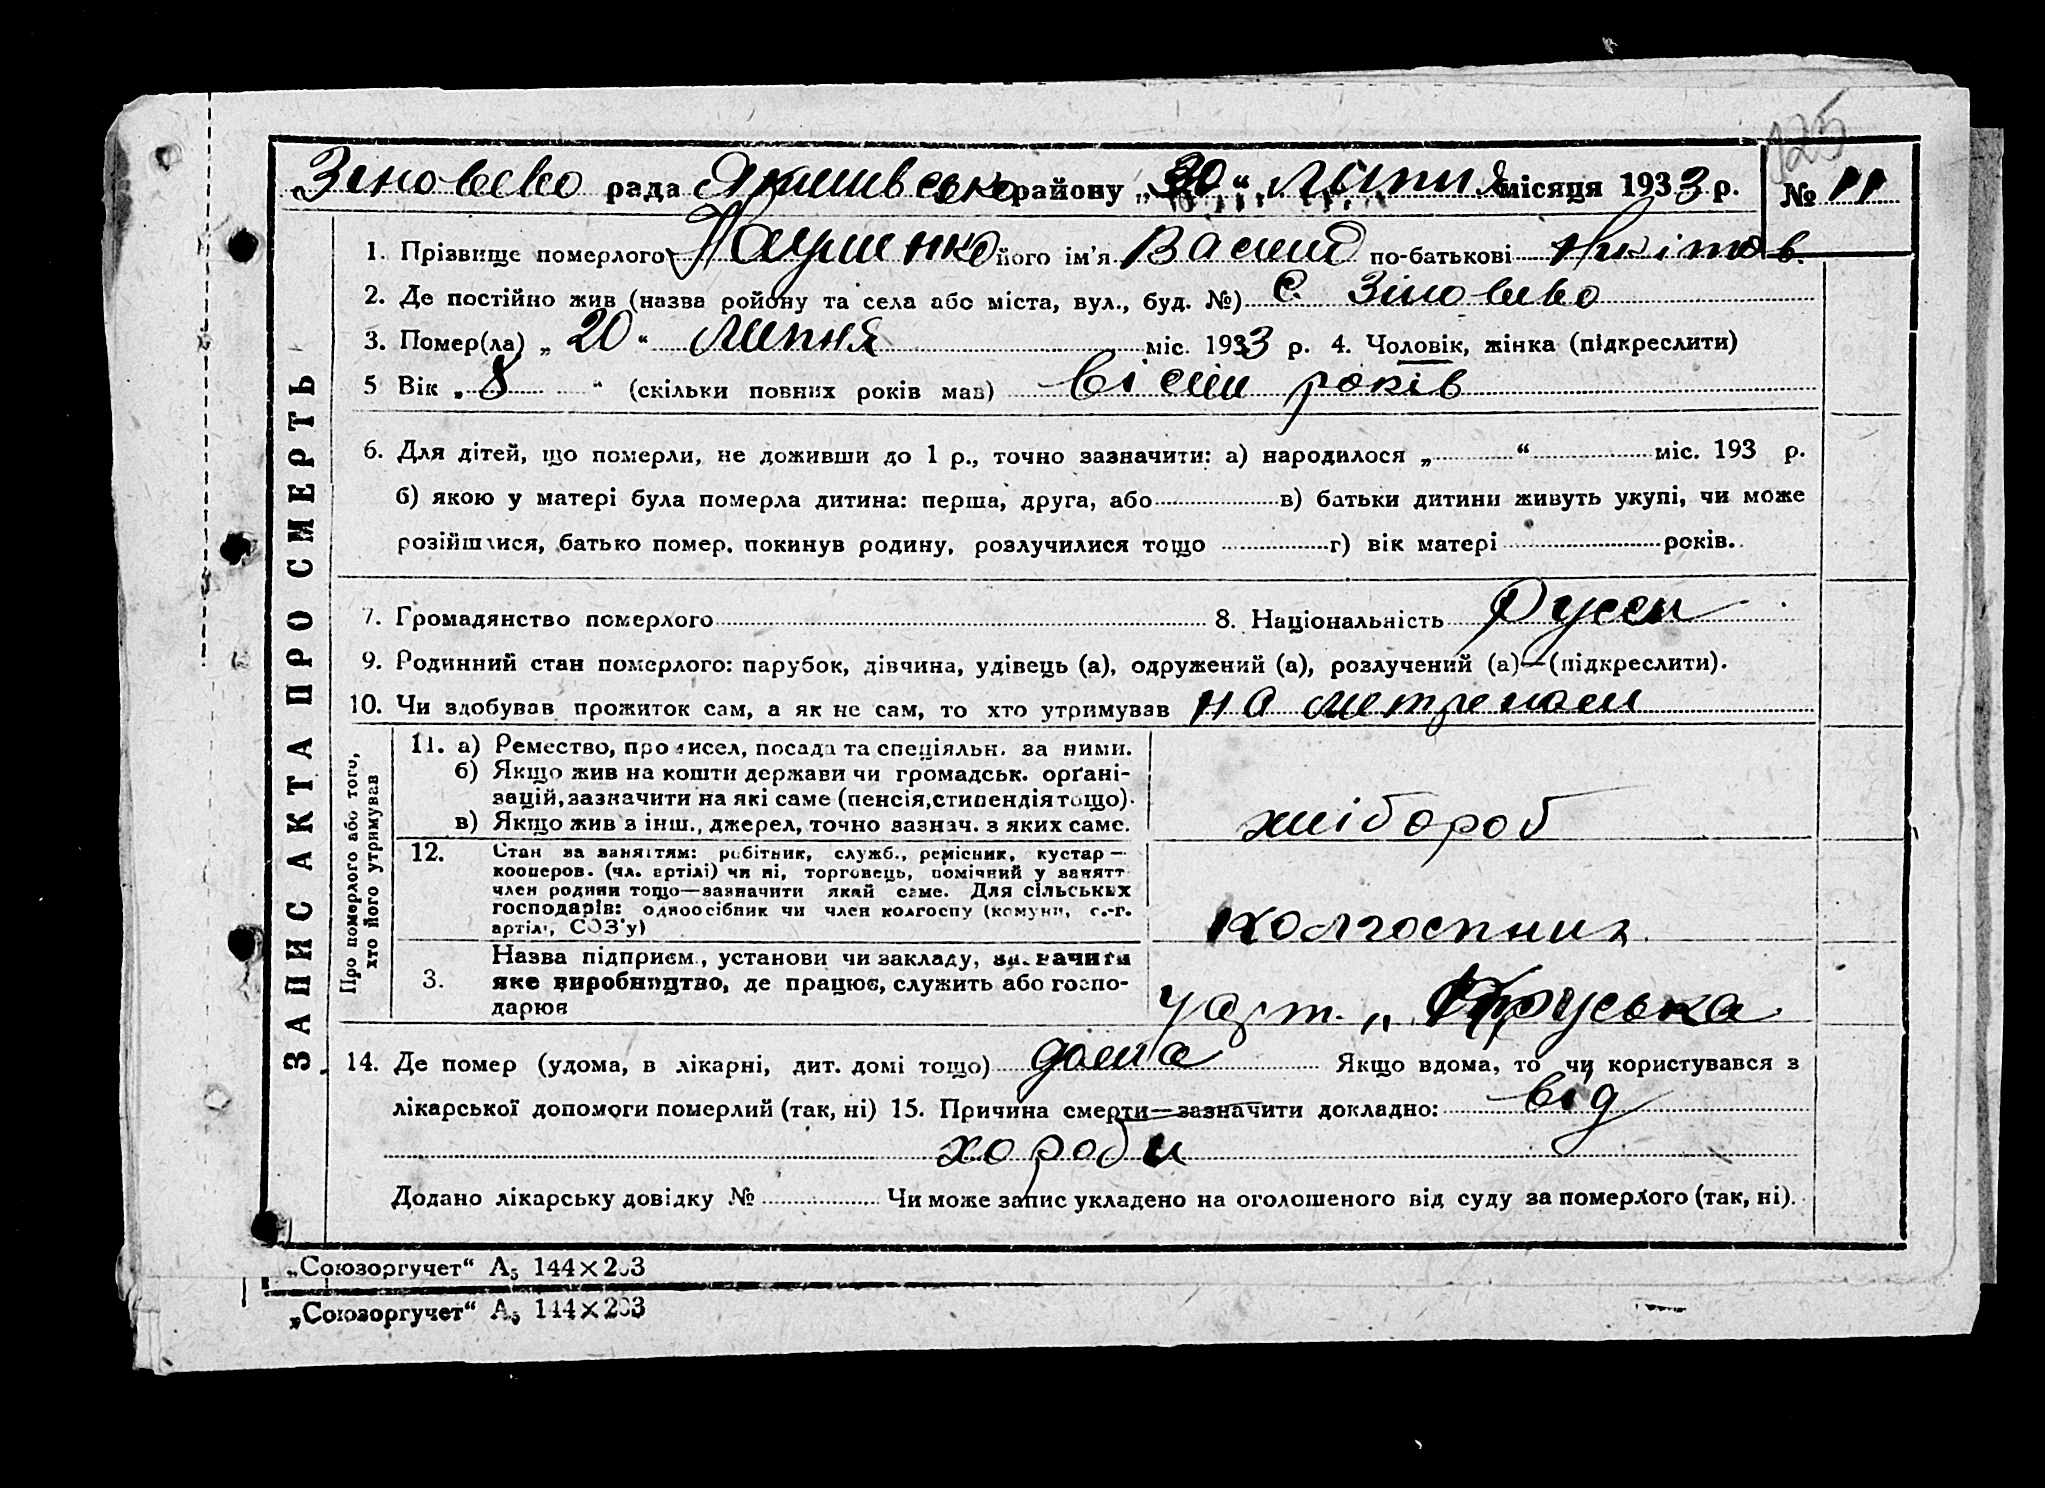 125
Зіновево рада Якимівсько району „30“ Липня місяця 1933 р. № 11
ЗАПИС АКТА ПРО СМЕРТЬ
1. Прізвище померлого Паушенко його ім'я Василь по-батькові Нікітов.
2. Де постійно жив (назва ройону та села або міста, вул., буд. №) С. Зіновево
3. Помер(ла) „20“ липня міс. 1933 р. 4. Чоловік, жінка (підкреслити)
5 Вік „8“ (скільки повних років мав) вісім років
6. Для дітей, що померли, не доживши до 1 р., точно зазначити: а) народилося „ “ міс. 193 р.
б) якою у матері була померла дитина: перша, друга, або в) батьки дитини живуть укупі, чи може
розійшлися, батько помер, покинув родину, розлучилися тощо г) вік матері років.
7. Громадянство померлого 8. Національність Русск
9. Родинний стан померлого: парубок, дівчина, удівець (а), одружений (а), розлучений (а)—(підкреслити).
10. Чи здобував прожиток сам, а як не сам, то хто утримував на
Про померлого або того,
хто його утримував
11. а) Ремество, промисел, посада та спеціяльн. за ними.
б) Якщо жив на кошти держави чи громадськ. орґані-
зацій, зазначити на які саме (пенсія, стипендія тощо).
в) Якщо жив з інш., джерел, точно зазнач. з яких саме.
хлібороб
12. Стан за заняттям: робітник, служб., ремісник, кустар—
кооперов. (чл. артілі) чи ні, торговець, помічний у занятт
член родини тощо—зазначити який саме. Для сільських
господарів: одноосібник чи член колгоспу (комуни, с.-г.
артілі, СОЗ'у)
колгоспник
3. Назва підприєм., установи чи закладу, зазначити
яке виробництво, де працює, служить або госпо-
дарює
у арт. „
14. Де помер (удома, в лікарні, дит. домі тощо) дома Якщо вдома, то чи користувався з
лікарської допомоги померлий (так, ні) 15. Причина смерти—зазначити докладно: від
хороби
Додано лікарську довідку № Чи може запис укладено на оголошеного від суду за померлого (так, ні).
„Союзоргучет“ А₅ 144×203
„Союзоргучет“ А₅ 144×203